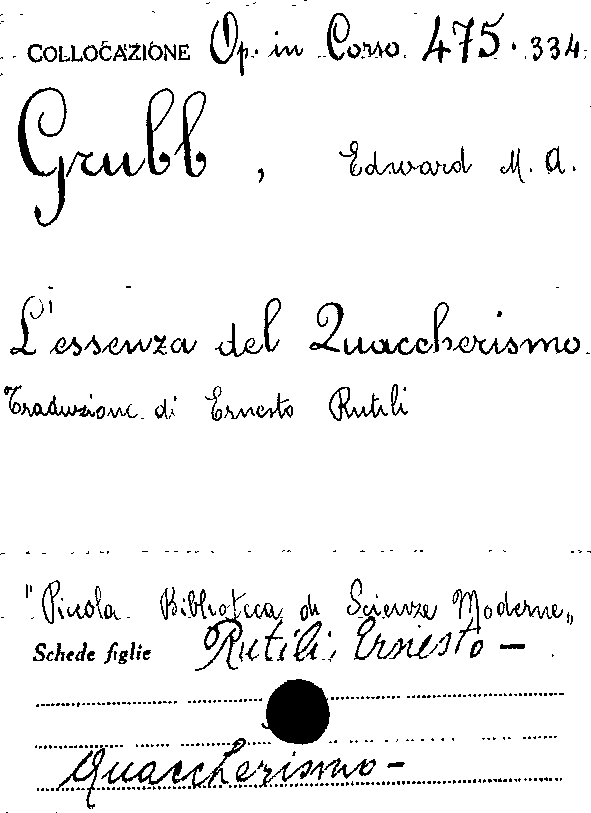 COLLOCAZIONE Op. in Corso 475. 334.
Grubb, Edward M. A.
L'essenza del Quaccherismo.
Traduzione di Ernesto Rutili
"Piccola Biblioteca di Scienze Moderne„
Schede figlie Rutili, Ernesto —
Quaccherismo -